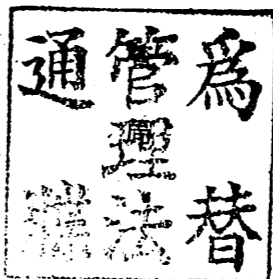 爲替
管理法
通